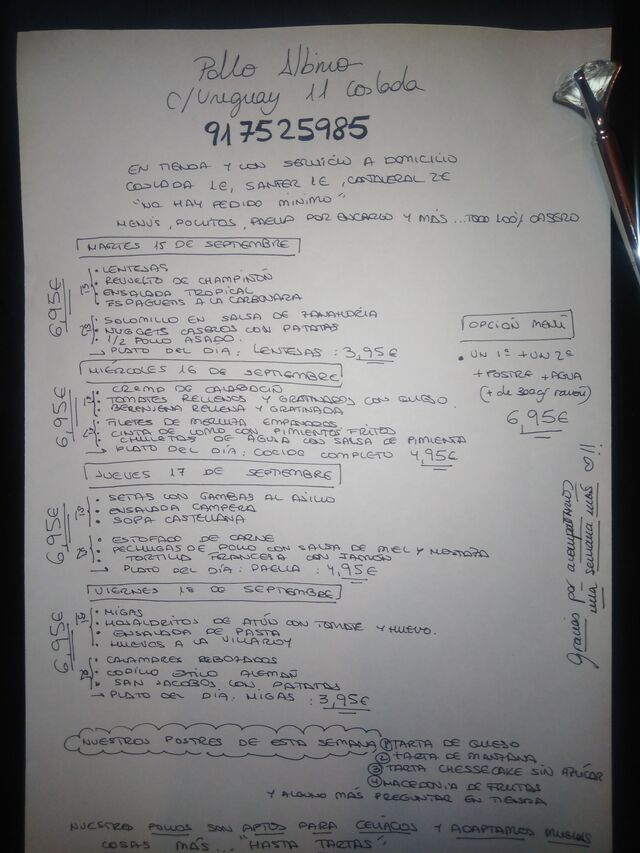 Pollo Albino
C/Uruguay 11 Coslada
917525985
EN TIENDA Y CON SERVICIO A DOMICILIO
COSLADA 1€, SANFER 1€, CAÑAVERAL 2€
"NO HAY PEDIDO MINIMO"
MENÚS, POLLITOS, PAELLA POR ENCARGO Y MÁS... TODO 100% CASERO
MARTES 15 DE SEPTIEMBRE
6,95€
1º
• LENTEJAS
• REVUELTO DE CHAMPIÑÓN
• ENSALADA TROPICAL
• ESPAGUETIS A LA CARBONARA
2º
• SOLOMILLO EN SALSA DE ZANAHORIA
• NUGGETS CASEROS CON PATATAS
• 1/2 POLLO ASADO.
→ PLATO DEL DIA: LENTEJAS: 3,95€
MIÉRCOLES 16 DE SEPTIEMBRE
6,95€
1º
• CREMA DE CALABACIN
• TOMATES RELLENOS Y GRATINADOS CON QUESO.
• BERENJENA RELLENA Y GRATINADA
2º
• FILETES DE MERLUZA EMPANADOS
• CINTA DE LOMO CON PIMIENTOS FRITOS
• CHULETAS DE AGUJA CON SALSA DE PIMIENTA
→ PLATO DEL DIA: COCIDO COMPLETO 4,95€
JUEVES 17 DE SEPTIEMBRE
6,95€
1º
• SETAS CON GAMBAS AL AJILLO
• ENSALADA CAMPERA
• SOPA CASTELLANA
2º
• ESTOFADO DE CARNE
• PECHUGAS DE POLLO CON SALSA DE MIEL Y MOSTAZA
• TORTILLA FRANCESA CON JAMÓN
→ PLATO DEL DIA: PAELLA: 4,95€
VIERNES 18 DE SEPTIEMBRE
6,95€
1º
• MIGAS
• HOJALDRITOS DE ATÚN CON TOMATE Y HUEVO.
• ENSALADA DE PASTA
• HUEVOS A LA VILLAROY
2º
• CALAMARES REBOZADOS
• CODILLO ESTILO ALEMÁN
• SAN JACOBOS CON PATATAS
→ PLATO DEL DIA: MIGAS: 3,95€
OPCIÓN MENÚ
• UN 1º + UN 2º
+ POSTRE + AGUA
(+ de 300g ración)
6,95€
Gracias por acompañarnos
una semana más ♡!!
NUESTROS POSTRES DE ESTA SEMANA
① TARTA DE QUESO
② TARTA DE MANZANA
③ TARTA CHESSECAKE SIN AZÚCAR
④ MACEDONIA DE FRUTAS
Y ALGUNO MÁS PREGUNTAR EN TIENDA
NUESTRO POLLOS SON APTOS PARA CELIACOS Y ADAPTAMOS MUCHAS
COSAS MÁS... "HASTA TARTAS"